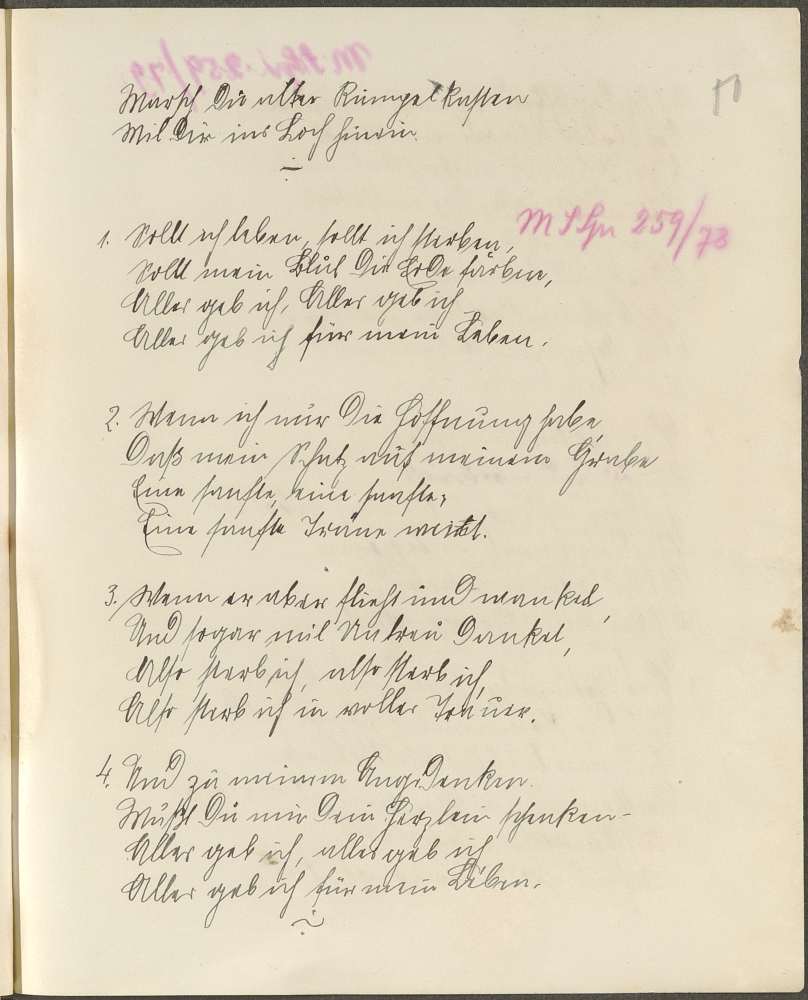 Marsch Du alter Rumpelkasten
Mit Dir ins Loch hinein.
1. Sollt ich leben, sollt ich sterben,
Sollt mein Blut die Erde färben,
Alles geb ich, Alles geb ich
Alles geb ich für mein Leben.
M S Hn 259/73
2. Wenn ich nur die Hoffnung habe,
Daß mein Schatz auf meinem Grabe
Eine sanfte, eine sanfte,
Eine sanfte Träne weint.
3. Wenn er aber flieht und wanket,
Und sogar mit Untreu danket,
Also sterb ich, also sterb ich
Also sterb ich in voller Trauer.
4. Und zu meinem Angedenken.
Mußt Du mir Dein Herzlein schenken -
Alles geb ich, alles geb ich
Alles geb ich für mein Leben.